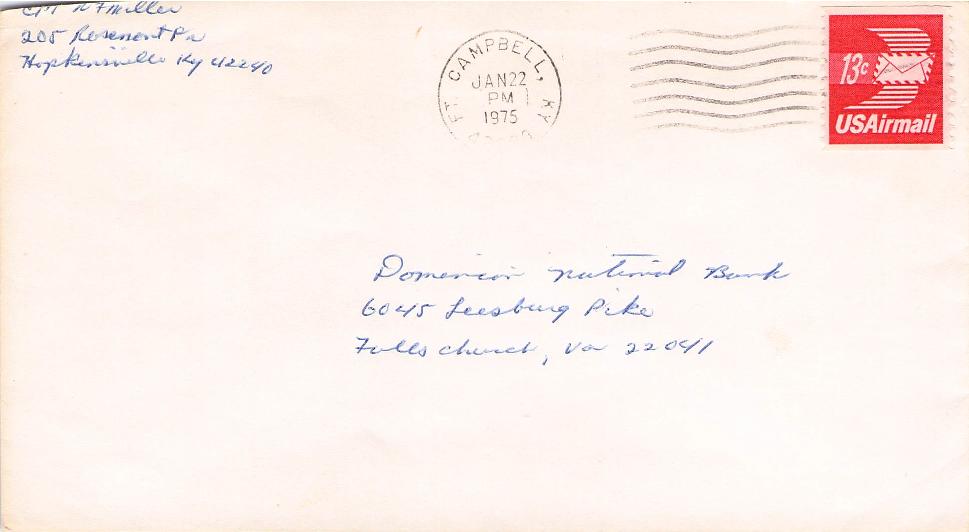 CPT R F Miller
205 Rosemont Dr
Hopkinsville Ky 42240
FT CAMPBELL, KY
JAN 22
PM
1975
13c
USAirmail
Domenion National Bank
6045 Leesburg Pike
Falls church, Va 22041